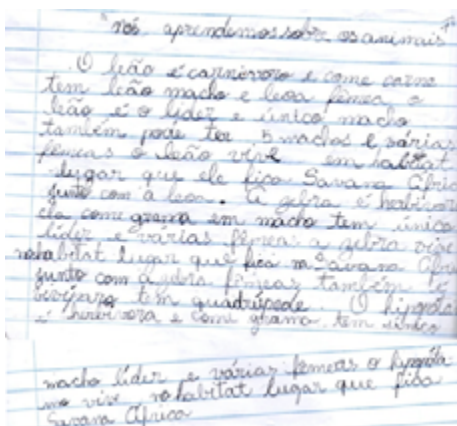 "nós, aprendemos sobre os animais"
O leão é carnívoro e come carne
tem leão macho e leoa fêmea o
leão é o líder e único macho
também pode ter 5 machos e várias
fêmeas o leão vive em habitat
lugar que ele fica Savana Áfric
junto com a leoa. A zebra é herbívor
ela come grama em macho tem único
líder e várias fêmeas a zebra vive
no habitat lugar que fica na Savana
junto com a zebra fêmeas também
tem quadrúpede. O
é herbívora e come grama tem único
macho líder e várias fêmeas o
mo vive no habitat lugar que fica
Savana África